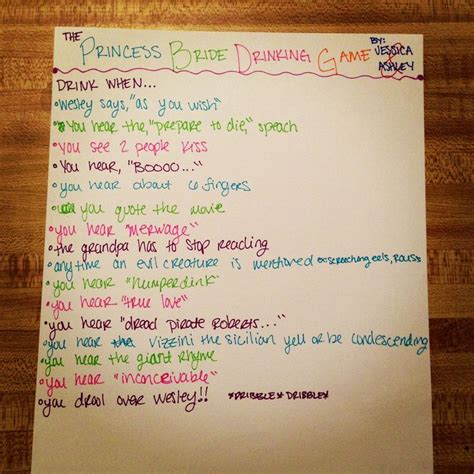 THE PRINCESS BRIDE DRINKING GAME BY: JESSICA & ASHLEY
DRINK WHEN...
• Wesley says, "as you wish"
• You hear the, "prepare to die," speach
• you see 2 people kiss
• You hear, "Boooo..."
• you hear about 6 fingers
• you quote the movie
• you hear "merwage"
• the grandpa has to stop reading
• any time an evil creature is mentioned screeching eels, ROUS's
• you hear "humperdink"
• you hear "true love"
• you hear "dread pirate roberts..."
• you hear vizzini the sicilian yell or be condescending
• you hear the giant rhyme
• you hear "inconceivable"
• you drool over wesley!! *DRIBBLE* DRIBBLE*